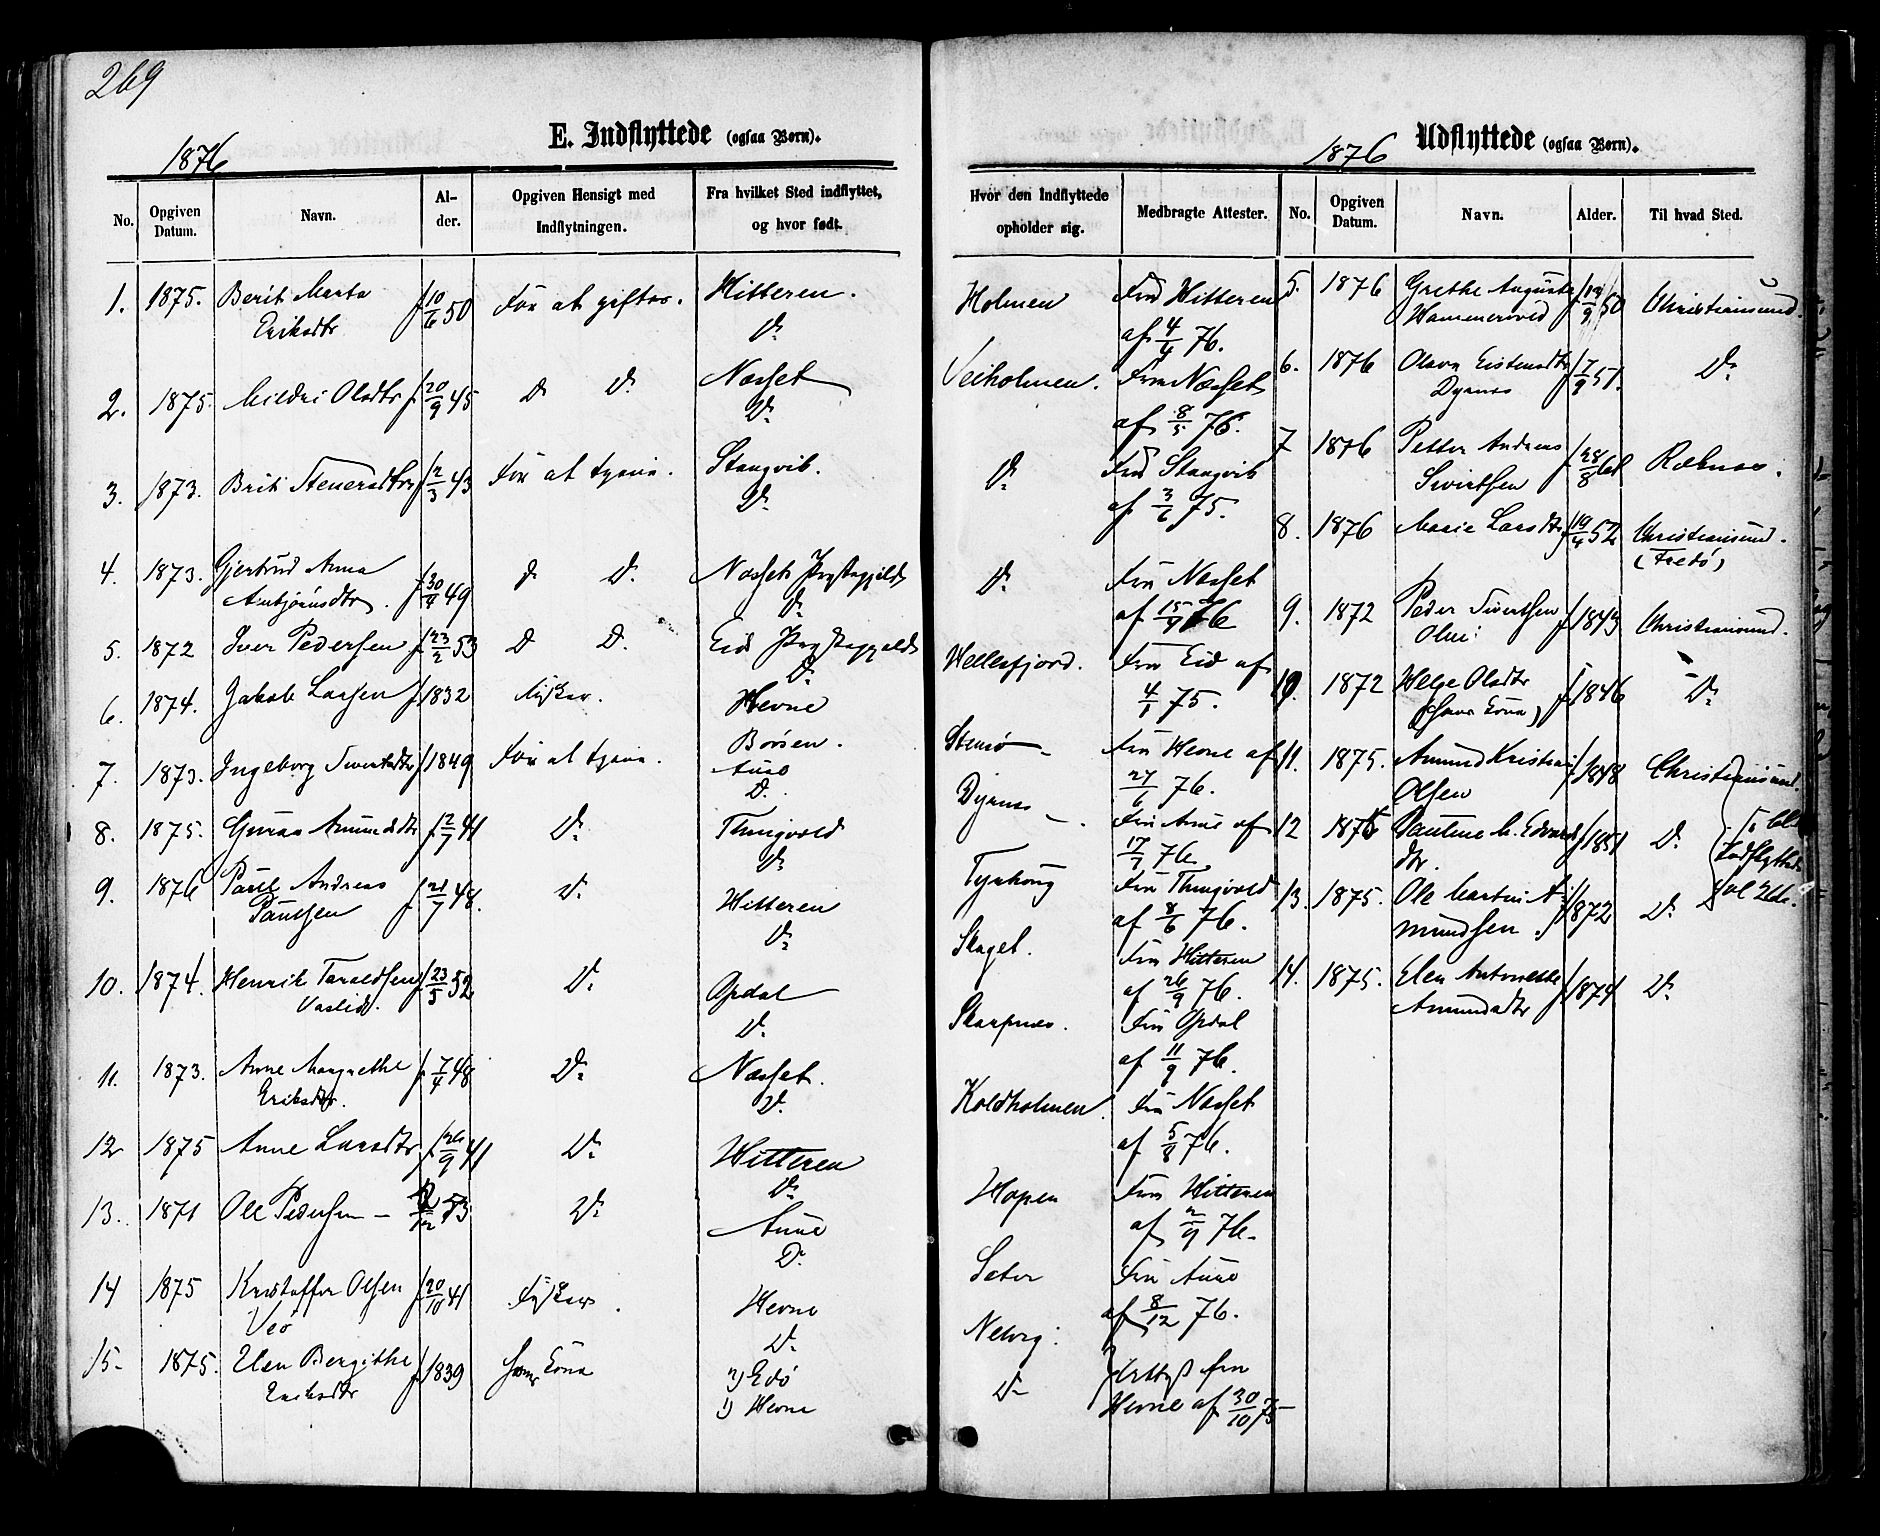 269
1876
E. Indflyttede (ogsaa Børn).
No.
Opgiven Datum.
Navn.
Al-
der.
Opgiven Hensigt med
Indflytningen.
Fra hvilket Sted indflyttet,
og hvor født.
1. 1875. Berit Marta f 10/6 50 For at giftes. Hitteren.
Eriksdtr Do
2. 1875. Mildri Olsdtr f 20/9 45 Do Do Nøsset
Do
3. 1873. Brit Stenersdtr f 2/3 43 For at tjene. Stangvik.
Do
4. 1873. Gjertrud Anna Do Do Nøssets Præstegjeld
f 30/4 49 Do
5. 1872 Iver Pedersen f 23/2 53 Do Do Eids Præstegjeld
Do
6. 1874. Jakob Larsen f. 1832 Fisker. Hevne
Børsen.
7. 1873. Ingeborg Sivertsdtr f 1849 For at tjene. Aure
Do
8. 1875. Guruan Amundsdtr f 2/7 41 Do Thingvold
Do
9. 1876 Paul Andreas f 21/7 48. Do Hitteren
Paulsen Do
10. 1874. Henrik Taraldsen f 23/5 52 Do Opdal
Vaslid. Do
11. 1873. Anne Margrethe f 7/4 48 Do Nøsset.
Eriksdtr. Do
12 1875 Anne Larsdtr f 26/9 41 Do Hitteren
Do
13. 1871 Ole Pedersen – 53 Do Aure
Do
14 1875 Kristoffer Olsen f 20/10 41 Fisker. Hevne
Veø Do
15- 1875. Elen Bergithe f 1839 hans Kone 2) Edø
Eriksdtr 1) Hevne
1876 Udflyttede (ogsaa Børn).
Hvor den Indflyttede
opholder sig.
Medbragte Attester.
No.
Opgiven
Datum.
Navn.
Alder.
Til hvad Sted.
Holmen Fra Hitteren
af 4/4 76.
Veiholmen. Fra Nøsset
af 8/5 76.
Do Fra Stangvik
af 3/6 75.
Do Fra Nøsset
af 15/7 76
Hellesfjord. Fra Eid af
4/1 75.
Stensø – Fra Hevne af
27/6 76.
Dyrnes – Fra Aure af
17/7 76
Tyrhoug Fra Thingvold
af 8/6 76.
Skaget. Fra Hitteren
af 26/9 76.
Skarpnes. Fra Opdal
af 11/9 76.
Koldholmen. Fra Nøsset
af 5/8 76.
Hopen Fra Hitteren
af 2/9 76.
Seter Fra Aure
af 8/12 76.
Nelvig.
Do Attest fra
Hevne af 30/10 75
5. 1876 Grethe Auguste f 50 Christiansund.
Hammersvold
6. 1876 Olava Eistensdtr f 7/9 51. Do
Dyrnes
7 1876 Petter Andreas f 28/8 61 Røknes.
Sivertsen
8. 1876 Marie Larsdtr f 19/4 52 Christiansund.
(Fredø)
9. 1872 Peder Sivertsen f 1843 Christiansund.
10. 1872 Helge Olsdtr f. 1846 Do
(hans Kone)
11. 1875. Amund Kristian f 1848 Christiansund.
Olsen
12 1875 Pauline M. Edvards f 1851 Do
dtr.
13. 1875. Ole Martin A- f 1872 Do
mundsen.
14. 1875. Elen Antonette f 1874 Do
Amundsdtr